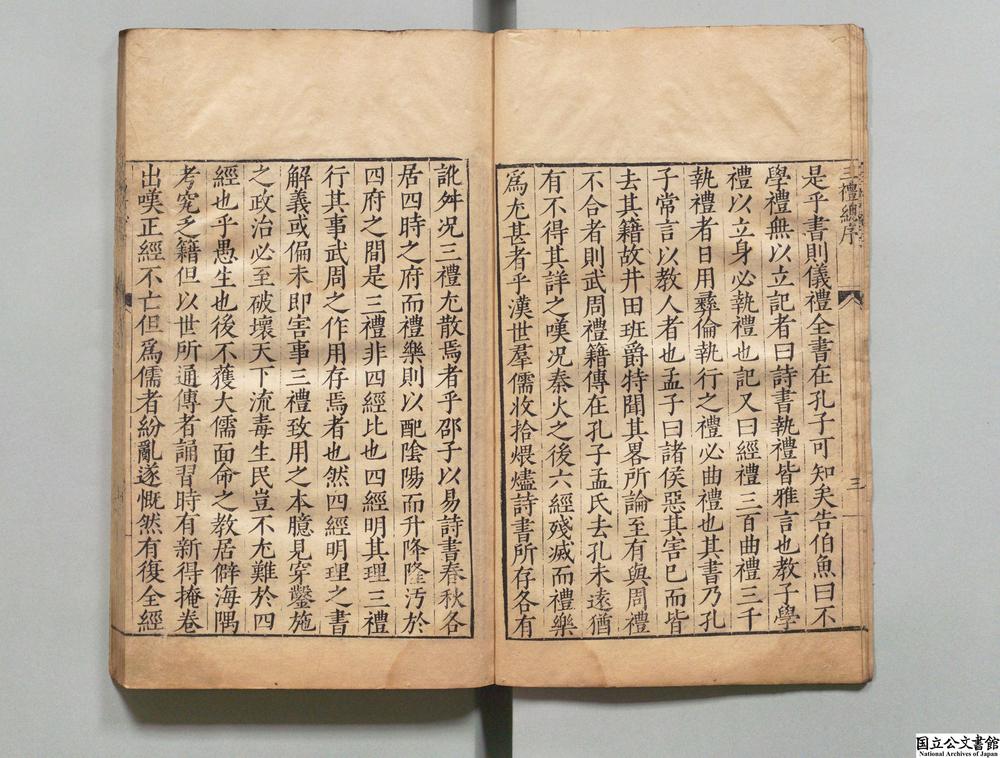 三禮總序
三
是乎書則儀禮全書在孔子可知矣告伯魚曰不
學禮無以立記者曰詩書執禮皆雅言也教子學
禮以立身必執禮也記又曰經禮三百曲禮三千
執禮者日用彞倫執行之禮必曲禮也其書乃孔
子常言以教人者也孟子曰諸侯惡其害已而皆
去其籍故井田班爵特聞其畧所論至有與周禮
不合者則武周禮籍傳在孔子孟氏去孔未遠猶
有不得其詳之嘆况秦火之後六經殘滅而禮樂
爲尤甚者乎漢世羣儒收拾煨燼詩書所存各有
訛舛况三禮尤散焉者乎邵子以易詩書春秋各
居四時之府而禮樂則以配陰陽而升降隆汚於
四府之間是三禮非四經比也四經明其理三禮
行其事武周之作用存焉者也然四經明理之書
解義或偏未即害事三禮致用之本臆見穿鑿施
之政治必至破壞天下流毒生民豈不尤難於四
經也乎愚生也後不獲大儒面命之教居僻海隅
考究乏籍但以世所通傳者誦習時有新得掩卷
出嘆正經不亡但爲儒者紛亂遂慨然有復全經
国立公文書館
National Archives of Japan